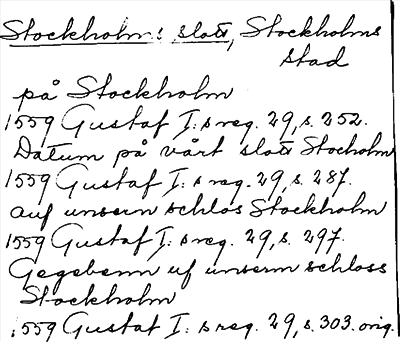 Stockholms slott, Stockholms
stad
på Stockholm
1559 Gustaf I:s reg. 29, s. 252.
Datum på vårt slott Stocholm
1559 Gustaf I:s reg. 29, s. 287.
auf unsern schlos Stockholm
1559 Gustaf I:s reg. 29, s. 297.
Gegebenn uf unserm schloss
Stockholm
1559 Gustaf I:s reg. 29, s. 303. orig.